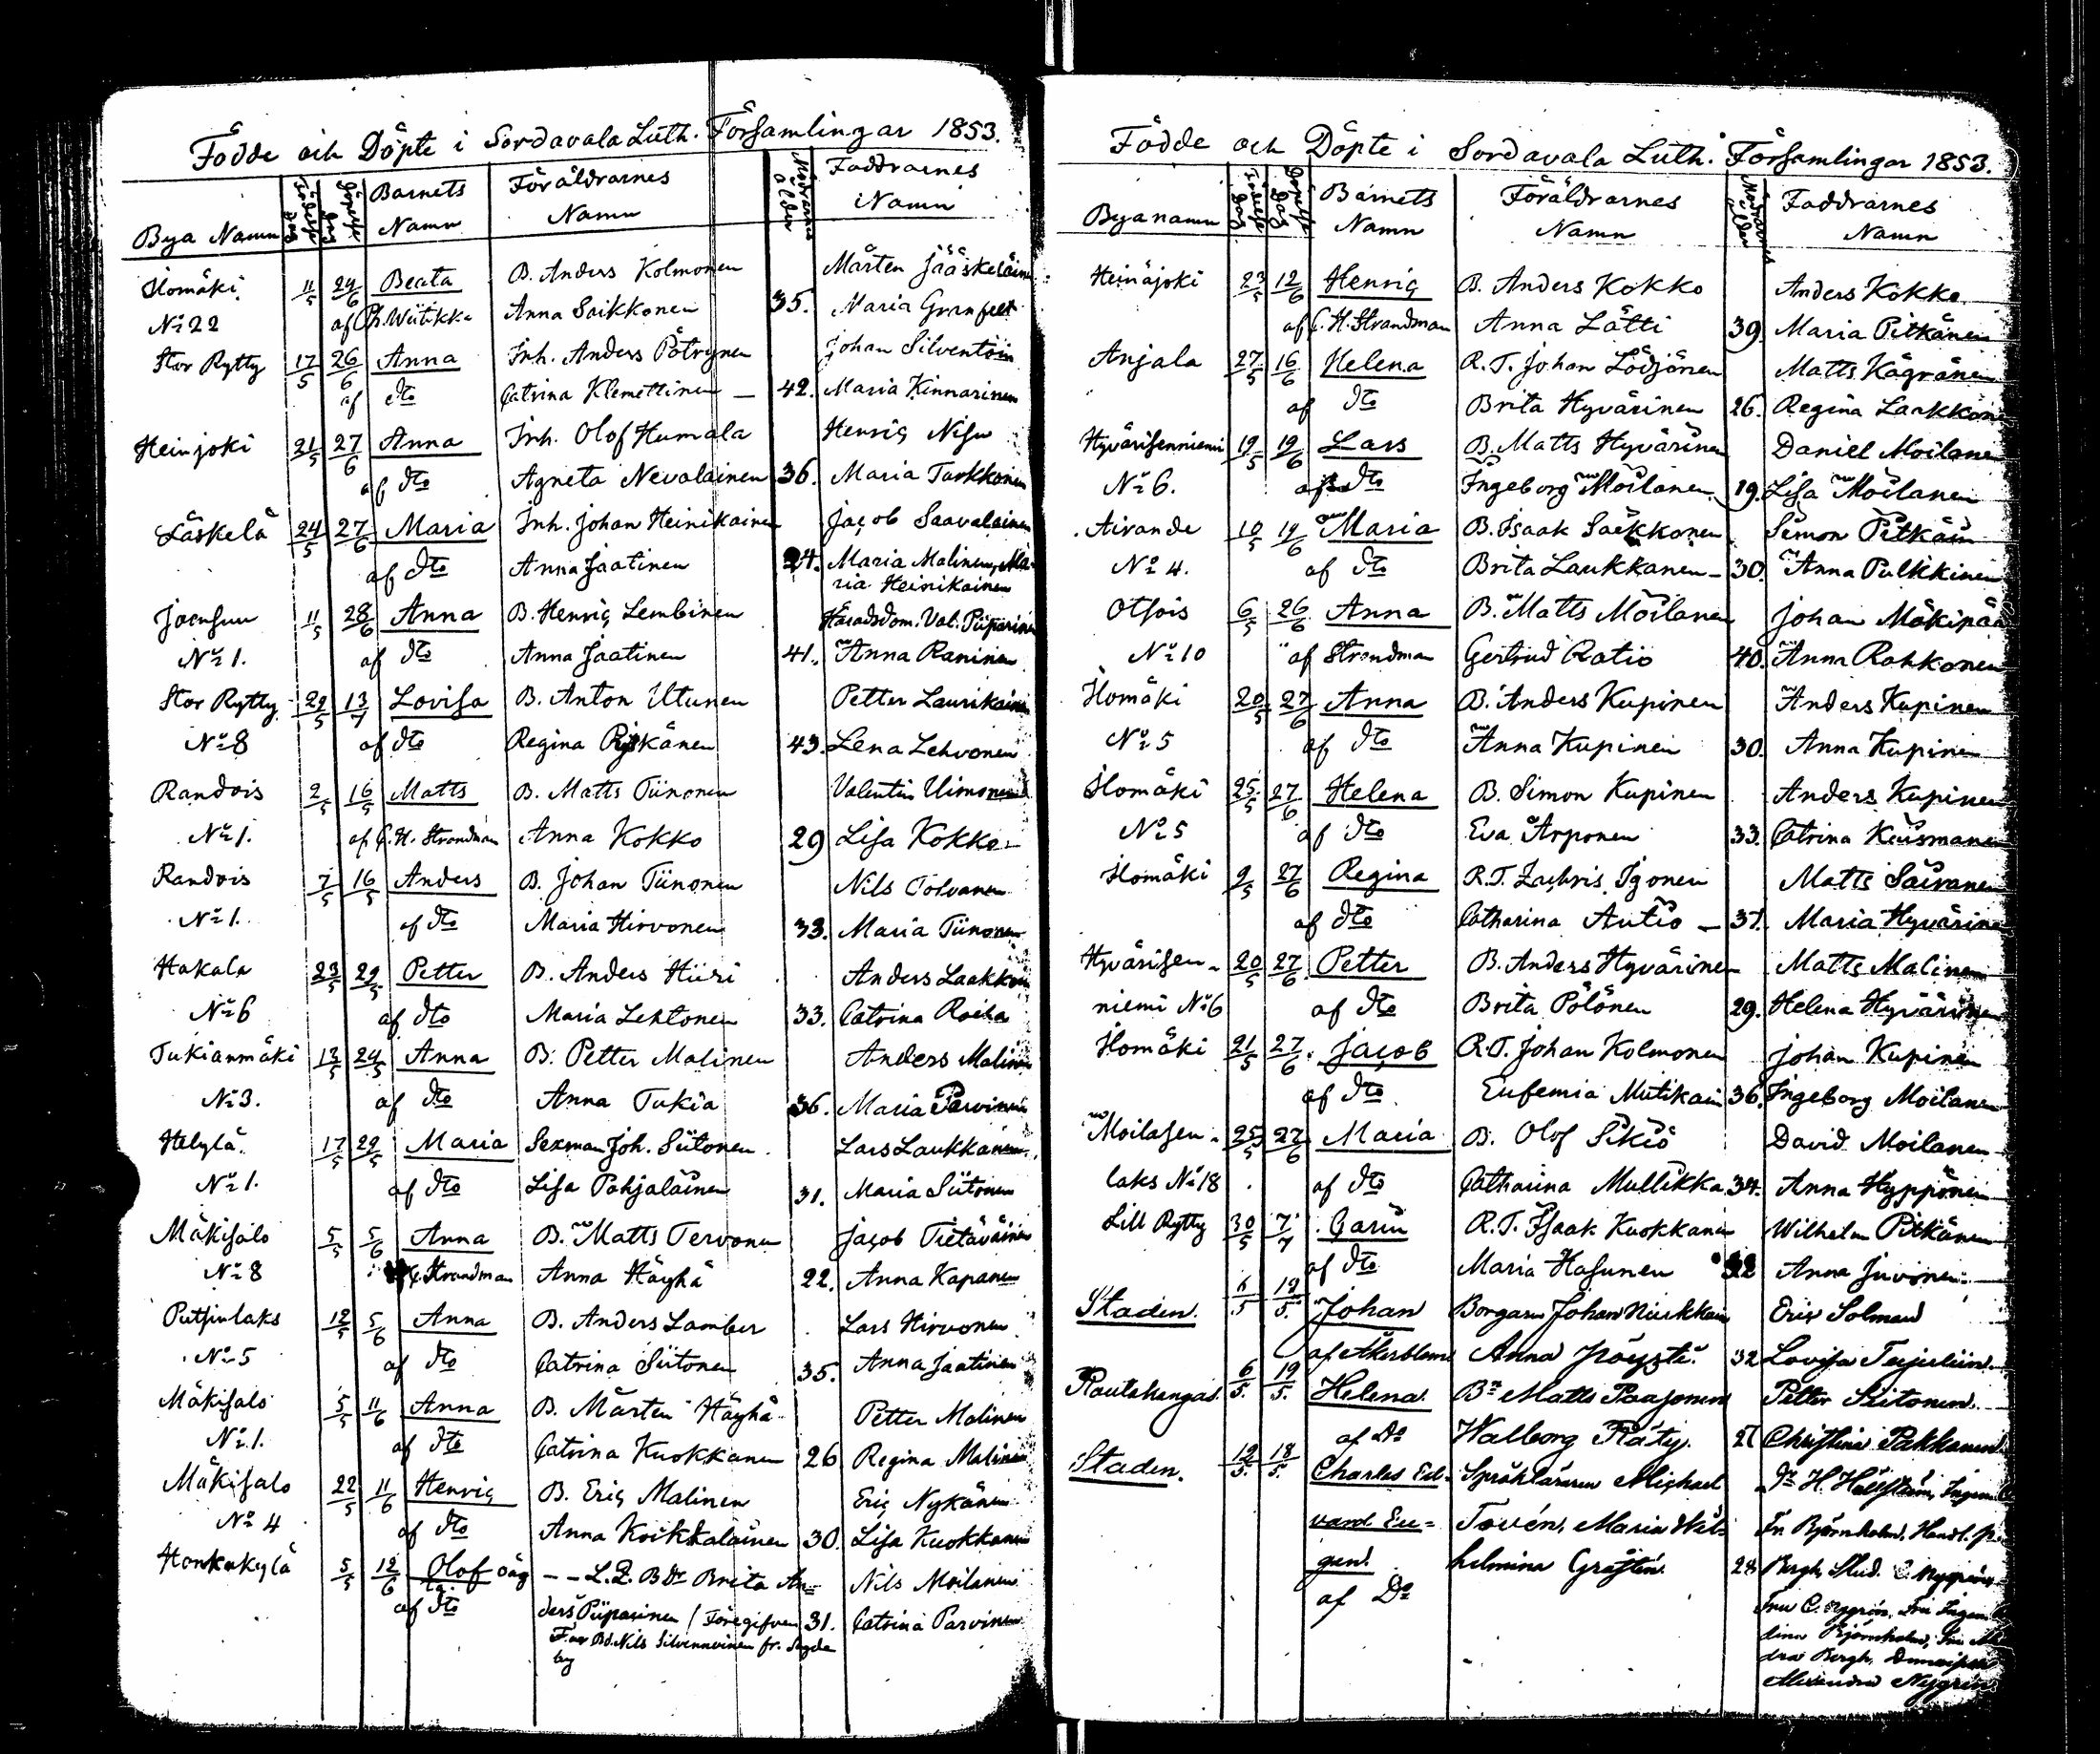 Födde och Döpte i Sordavala Luth. Församlingar 1853.
Bya Namn Födelse Dag Döpelse Dag Barnets Namn Föräldrarnes Namn Modrarnes ålder Faddrarnes Namn
Ilomäki 11/5 24/6 Beata B. Anders Kolmonen Mårten Jääskeläine
No 22 af Anna Saikkonen 35. Maria Granfelt
Stor Rytty 17/5 26/6 Anna Inh. Anders Pötrynen Johan Silventoin
af dto Catrina Klemettinen — 42. Maria Kinnarinen
Heinjoki 21/5 27/6 Anna Inh. Olof Humala Henric
af dto Agneta Nevalainen 36. Maria Tarkkonen
Läskelä 24/5 27/6 Maria Inh. Johan Heinikainen Jacob Saavalainen
af dto Anna Jaatinen 24. Maria Malinen, Ma-
ria Heinikainen
Joensuu 11/5 28/6 Anna B. Henric Lembinen Häradsdom. Val. Piiparinen
No 1. af dto Anna Jaatinen 41. Anna Raninen
Stor Rytty 29/5 13/7 Lovisa B. Anton Utunen Petter Laurikaine
No 8 af dto Regina 43. Lena Lehvonen
Randois 2/5 16/5 Matts B. Matts Tiinonen Valentin Uimonen
No 1. af C. H. Strandman Anna Kokko 29 Lisa Kokko
Randois 7/5 16/5 Anders B. Johan Tiinonen Nils Tolvanen
No 1. af dto Maria Hirvonen 33. Maria Tiinonen
Hakala 23/5 29/5 Petter B. Anders Hiiri Anders Laakkon
No 6 af dto Maria Lehtonen 33. Catrina Roiha
Tukianmäki 13/5 24/5 Anna B. Petter Malinen Anders Malinen
No 3. af dto Anna Tukia 36. Maria Parvinen
Helylä 17/5 29/5 Maria Sexman Joh. Siitonen Lars Laukkanen
No 1. af dto Lisa Pohjalainen 31. Maria Siitonen
Mäkisalo 5/5 5/6 Anna B. Matts Tervonen Jacob Tietäväinen
No 8 C. Strandman Anna Häyhä 22. Anna Kapanen
Putsinlaks 12/5 5/6 Anna B. Anders Lamber Lars Hirvonen
No 5 af dto Catrina Siitonen 35. Anna Jaatinen
Mäkisalo 5/5 11/6 Anna B. Mårten Häyhä Petter Malinen
No 1. af dto Catrina Kuokkanen 26 Regina Malinen
Mäkisalo 22/5 11/6 Henric B. Eric Malinen Eric Nykänen
No 4 af dto Anna Koikkalainen 30. Lisa Kuokkanen
Honkakylä 5/5 12/6 Olof oäg — — L. Q. B Dr Brita An- Nils Moilanen
af dto ders Piiparinen / Föregifven 31. Catrina Parvinen
Far Bd. Nils Silvennoinen fr.
by
Födde och Döpte i Sordavala Luth. Församlingar 1853.
Bya namn Födelse Dag Döpelse Dag Barnets Namn Föräldrarnes Namn Modrarnes ålder Faddrarnes Namn
Heinäjoki 23/5 12/6 Henric B. Anders Kokko Anders Kokko
af C. H. Strandman Anna Lätti 39. Maria Pitkänen
Anjala 27/5 16/6 Helena R. T. Johan Lödjönen Matts Kägränen
af dto Brita Hyvärinen 26. Regina Laakkon
Hyvärisenniemi 19/5 19/6 Lars B. Matts Hyvärinen Daniel Moilanen
No 6. af dto Ingeborg Moilanen 19. Lisa Moilanen
Airande 10/5 19/6 Maria B. Isaak Saikkonen Simon Pitkäin
No 4. af dto Brita Laukkanen — 30. Anna Pulkkinen
Otsois 6/5 26/6 Anna B. Matts Moilanen Johan Mäkipää
No 10 af Strandman Gertrud Ratio 40. Anna Rahkonen
Ilomäki 20/5 27/6 Anna B. Anders Kupinen Anders Kupinen
No 5 af dto Anna Kupinen 30. Anna Kupinen
Ilomäki 25/5 27/6 Helena B. Simon Kupinen Anders Kupinen
No 5 af dto Eva Arponen 33. Catrina Kiiismanen
Ilomäki 9/5 27/6 Regina R. T. Zachris Igonen Matts Sairanen
af dto Catharina Autio — 37. Maria Hyvärine
Hyvärisen- 20/5 27/6 Petter B. Anders Hyvärinen Matts Malinen
niemi No 6 af dto Brita Pölönen 29. Helena Hyvärinen
Ilomäki 21/5 27/6 Jacob R. T. Johan Kolmonen Johan Kupinen
af dto Eufemia Mutikain 36. Ingeborg Moilanen
Moilasen- 25/5 27/6 Maria B. Olof Sikiö David Moilanen
laks No 18 af dto Catharina Mullikka 34. Anna Hyppönen
Lill Rytty 30/5 7/7 Carin R. T. Isaak Kuokkanen Wilhelm Pitkänen
af dto Maria Hasunen 32 Anna Juvonen
Staden. 6/5 19/5 Johan Borgaren Johan Eric Solman
af Åkerblom Anna Pöysti 32 Lovisa
Rautakangas 6/5 19/5 Helena Bn Matts Paajonen Petter Siitonen
af Do Walborg Räty 27 Christina Pakkanen
Staden. 12/5 18/5 Charles Ed- Språkläraren Michael Dr H. Hällström, Ingen
vard Eu- Tovén, Maria Wil- Fr Björnholm, Handl.
gen helmina Gråsten 28 Bergh, Stud. Nygrén
af Do Fru C. Nygrén, Fru Ingen
Björnholm, Fru
dra Bergh,
Alexandra Nygrén